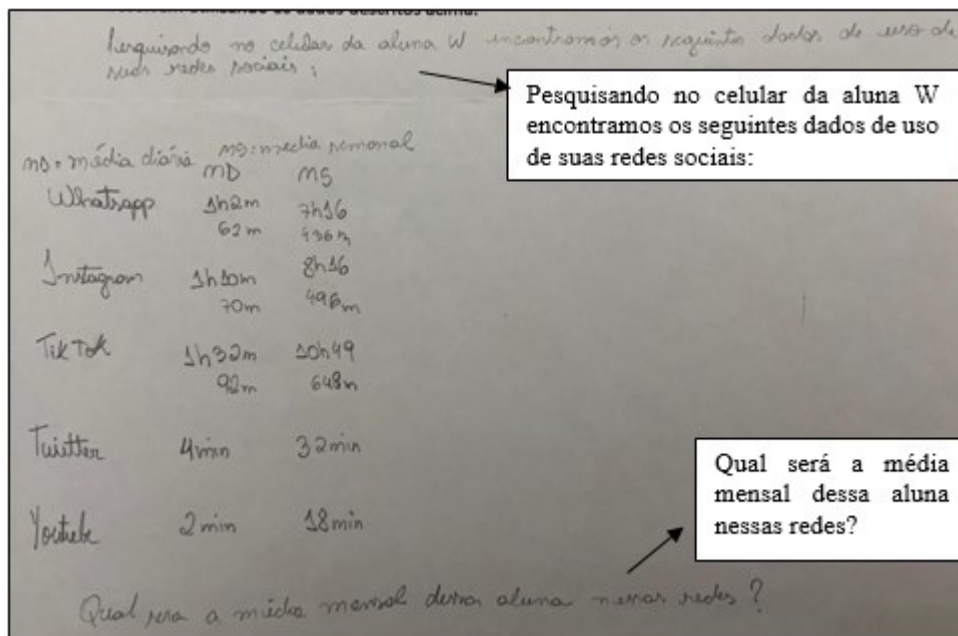 resolvam utilizando os dados descritos acima.
Pesquisando no celular da aluna W encontramos os seguintes dados de uso de
suas redes sociais:
Pesquisando no celular da aluna W
encontramos os seguintes dados de uso
de suas redes sociais:
MD = média diária MS = media semanal
MD MS
Whatsapp 1h2m 7h16
62m 436m
Instagram 1h10m 8h16
70m 496m
TikTok 1h32m 10h49
92m 648m
Twitter 4min 32min
Youtube 2min 18min
Qual será a média
mensal dessa aluna
nessas redes?
Qual sera a média mensal dessa aluna nessas redes?